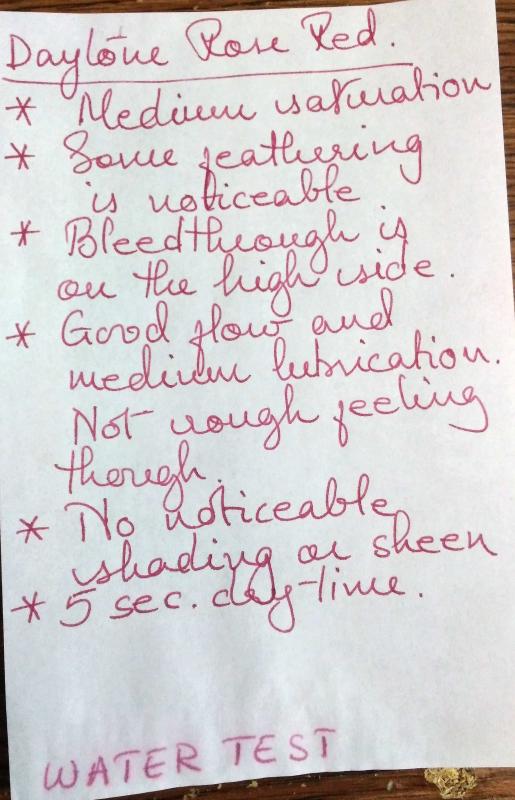 Daytone Rose Red.
* Medium saturation
* Some feathering
is noticeable
* Bleedthrough is
on the high side.
* Good flow and
medium lubrication.
Not rough feeling
though.
* No noticeable
shading or sheen
* 5 sec. dry-time.
WATER TEST